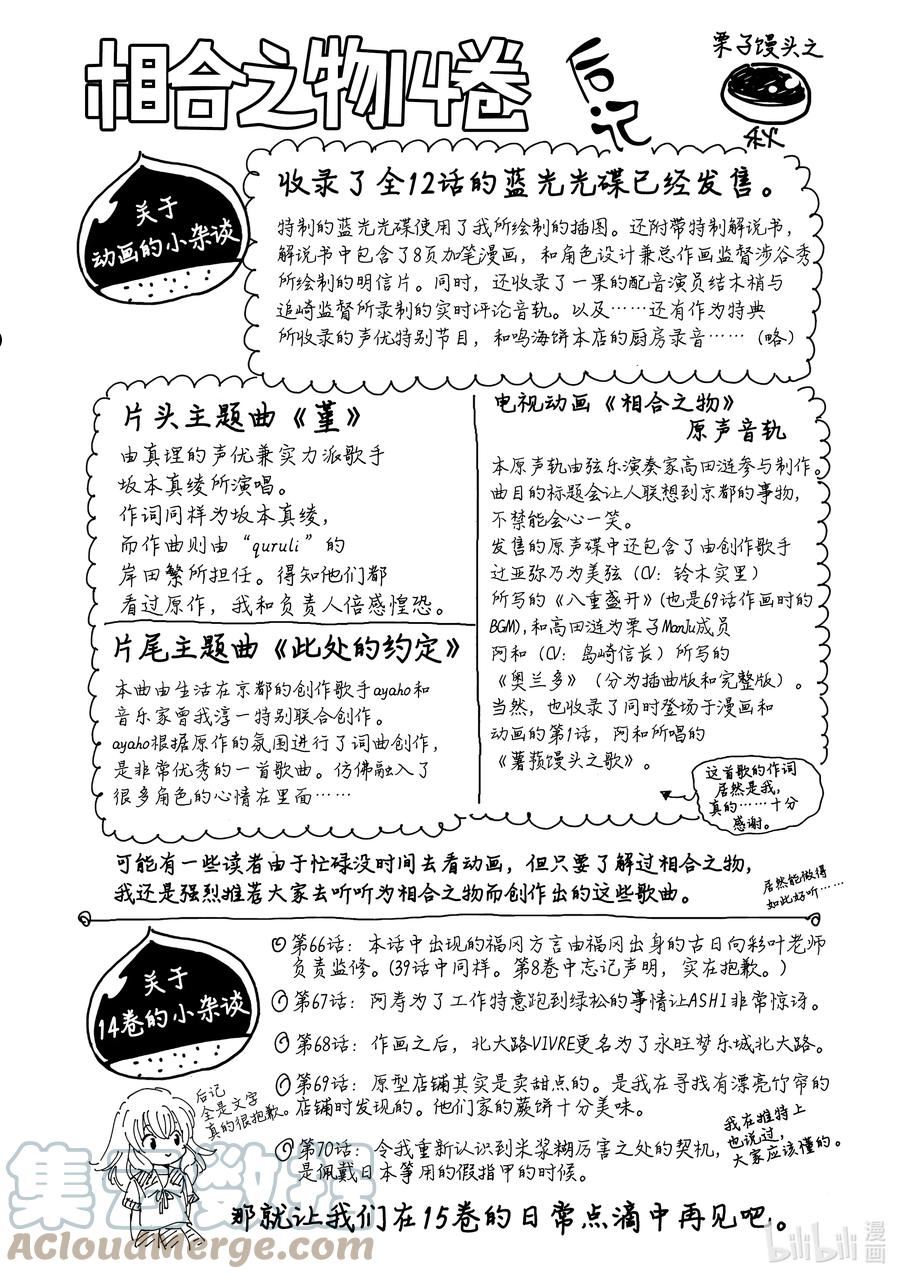 相合之物14卷
后记
栗子馒头之
秋
关于
动画的小杂谈
收录了全12话的蓝光光碟已经发售。
特制的蓝光光碟使用了我所绘制的插图。还附带特制解说书，
解说书中包含了8页加笔漫画，和角色设计兼总作画监督涉谷秀
所绘制的明信片。同时，还收录了一果的配音演员结木梢与
追崎监督所录制的实时评论音轨。以及……还有作为特典
所收录的声优特别节目，和鸣海饼本店的厨房录音……（略）
片头主题曲《堇》
由真理的声优兼实力派歌手
坂本真绫所演唱。
作词同样为坂本真绫，
而作曲则由“quruli”的
岸田繁所担任。得知他们都
看过原作，我和负责人倍感惶恐。
片尾主题曲《此处的约定》
本曲由生活在京都的创作歌手ayaho和
音乐家曾我淳一特别联合创作。
ayaho根据原作的氛围进行了词曲创作，
是非常优秀的一首歌曲。仿佛融入了
很多角色的心情在里面……
电视动画《相合之物》
原声音轨
本原声轨由弦乐演奏家高田涟参与制作。
曲目的标题会让人联想到京都的事物，
不禁能会心一笑。
发售的原声碟中还包含了由创作歌手
辻亚弥乃为美弦（CV：铃木实里）
所写的《八重盛开》(也是69话作画时的
BGM)，和高田涟为栗子ManJu成员
阿和（CV：岛崎信长）所写的
《奥兰多》（分为插曲版和完整版）。
当然，也收录了同时登场于漫画和
动画的第1话，阿和所唱的
《薯蓣馒头之歌》。
这首歌的作词
居然是我，
真的……十分
感谢。
可能有一些读者由于忙碌没时间去看动画，但只要了解过相合之物，
我还是强烈推荐大家去听听为相合之物而创作出的这些歌曲。
居然能做得
如此好听……
关于
14卷的小杂谈
第66话：本话中出现的福冈方言由福冈出身的古日向彩叶老师
负责监修。(39话中同样。第8卷中忘记声明，实在抱歉。)
第67话：阿寿为了工作特意跑到绿松的事情让ASHI非常惊讶。
第68话：作画之后，北大路VIVRE更名为了永旺梦乐城北大路。
第69话：原型店铺其实是卖甜点的。是我在寻找有漂亮竹帘的
店铺时发现的。他们家的蕨饼十分美味。
第70话：令我重新认识到米浆糊厉害之处的契机，
是佩戴日本筝用的假指甲的时候。
我在推特上
也说过，
大家应该懂的。
后记
全是文字
真的很抱歉。
那就让我们在15卷的日常点滴中再见吧。
集云数程
ACloudMerge.com
bilibili漫画